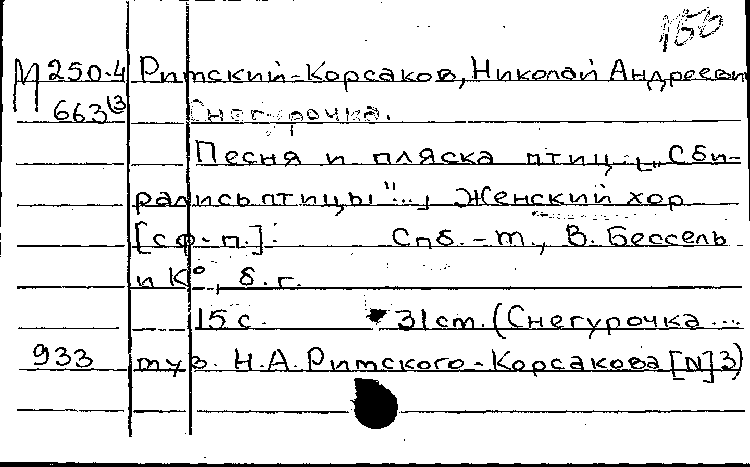 156
М 250.4 Римский-Корсаков, Николай Андреевич
663(3 Снегурочка.
Песня и пляска птиц: „Сби-
рались птицы"... Женский хор
[с ф-п.]. Спб.-м., В. Бессель
и К°, б. г.
15 с. 31 cm. (Снегурочка ...
933 муз. Н.А. Римского-Корсакова [N] 3)